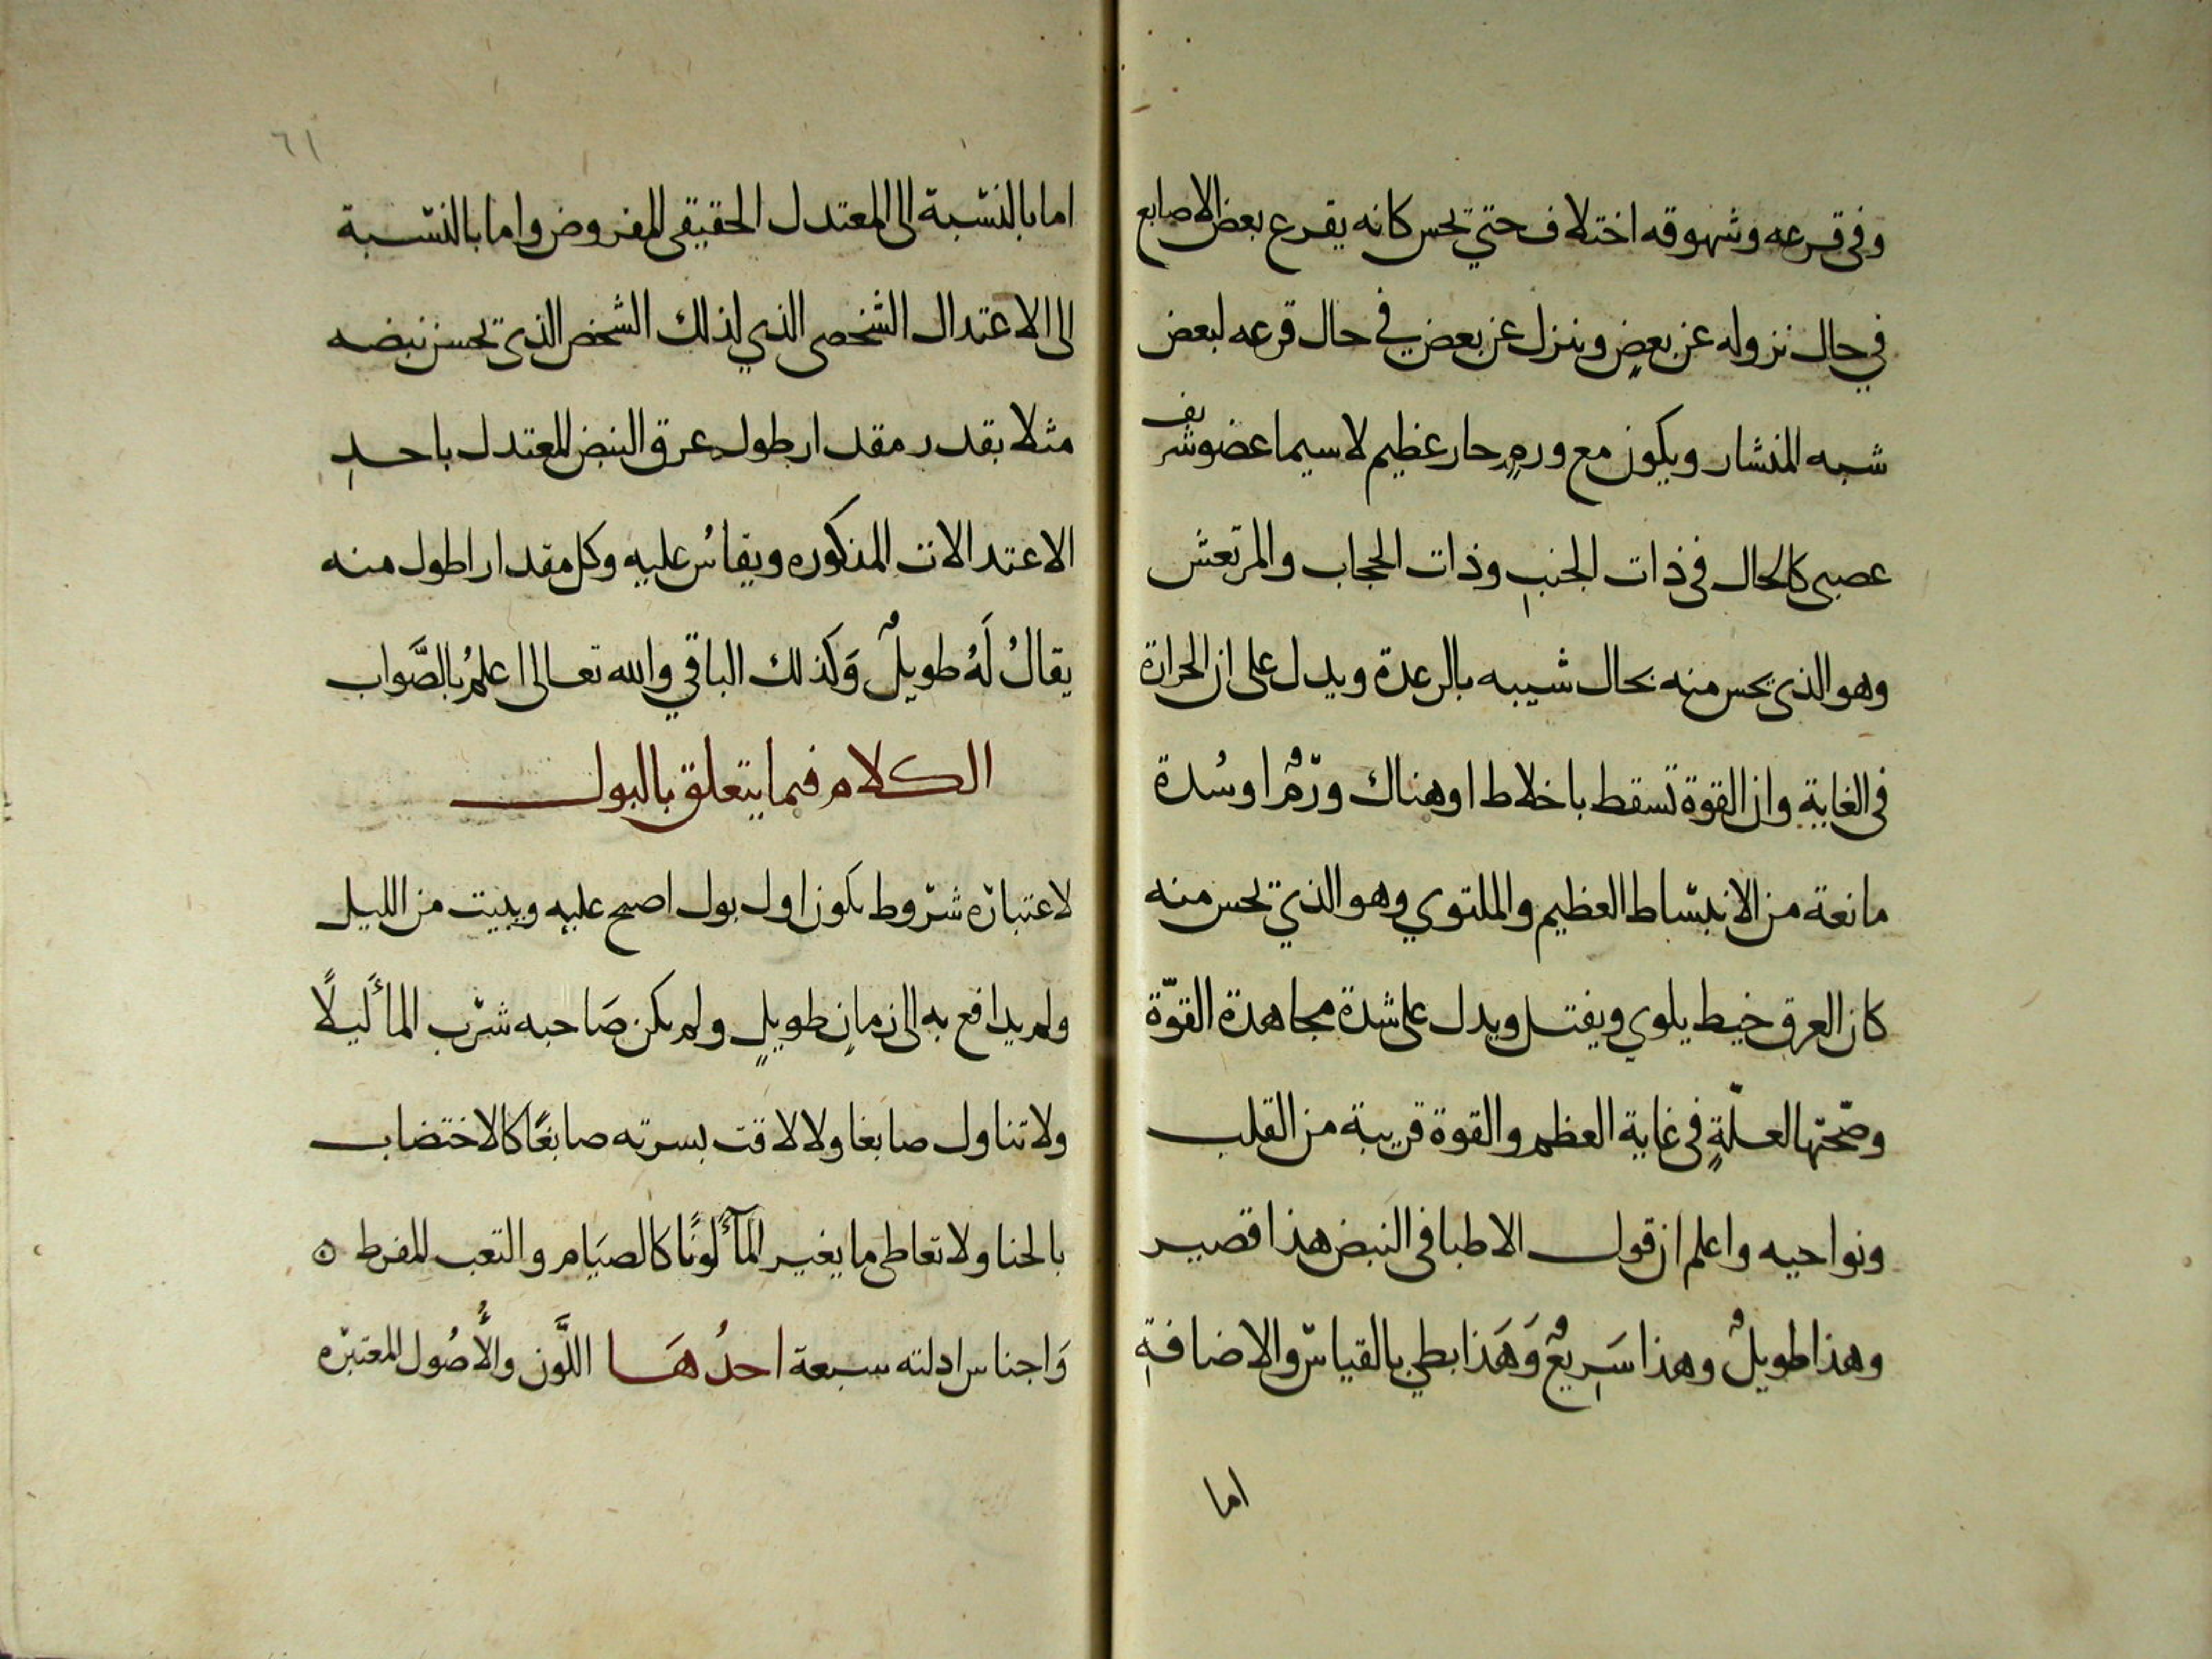 وفي قرعه وشهوقه اختلاف حتي تحس كانه يقرع بعض الاصابع
في حال نزوله عن بعضٍ وينزل عن بعض في حال قرعه لبعض
شبه المنشار ويكون مع ورمٍ حار عظيم لا سيما عضو شريف
عصبي كالحال في ذات الجنبِ وذات الحجاب والمرتعش
وهو الذي يحس منه بحال شبيبه بالرعدة ويدل على ان الحرارة
في الغاية وان القوة تسقط باخلاط او هناك ورمٌ او سُدة
مانعة من الانبساط العظيم والملتوي وهو الذي تحس منه
كان العرق خيط يلوي ويفتل ويدل على شدة مجاهدة القوّة
وصحتها العلّةِ في غاية العظم والقوة قريبة من القلب
ونواحيه واعلم ان قول الاطبا في النبض هذا قصير
وهذا طويلٌ وهذا سَرِيعٌ وَهَذا بطي بالقياس والاضافةِ
اما
٦١
اما بالنسبة الى المعتدل الحقيقي المفروض واما بالنسبة
الى الاعتدال الشخصي الذي لذلك الشخص الذي تحسن نبضه
مثلا بقدر مقدار طول عرق النبض المعتدل باحدِ
الاعتدالات المذكوره ويقاسُ عليه وكل مقدار اطول منه
يقالُ لَهُ طويلٌ وَكذلك الباقي والله تعالى اعلمُ بالصَّواب
الكلام فيما يتعلق بالبول
لاعتباره شروط يكون اول بول اصبح عليه ويبيت من الليل
ولم يدافع به الى زمانٍ طويلٍ ولم يكن صَاحبه شرب الماءَ ليلاً
ولا تناول صابغا ولا لاقت بسرته صابغًا كالاختضاب
بالحنا ولا تعاطى ما يغير المآءَ لونًا كالصيَام والتعب المفرط ٥
وَاجناس ادلته سبعة احدُهَا اللَّون والأُصُول المعتبره